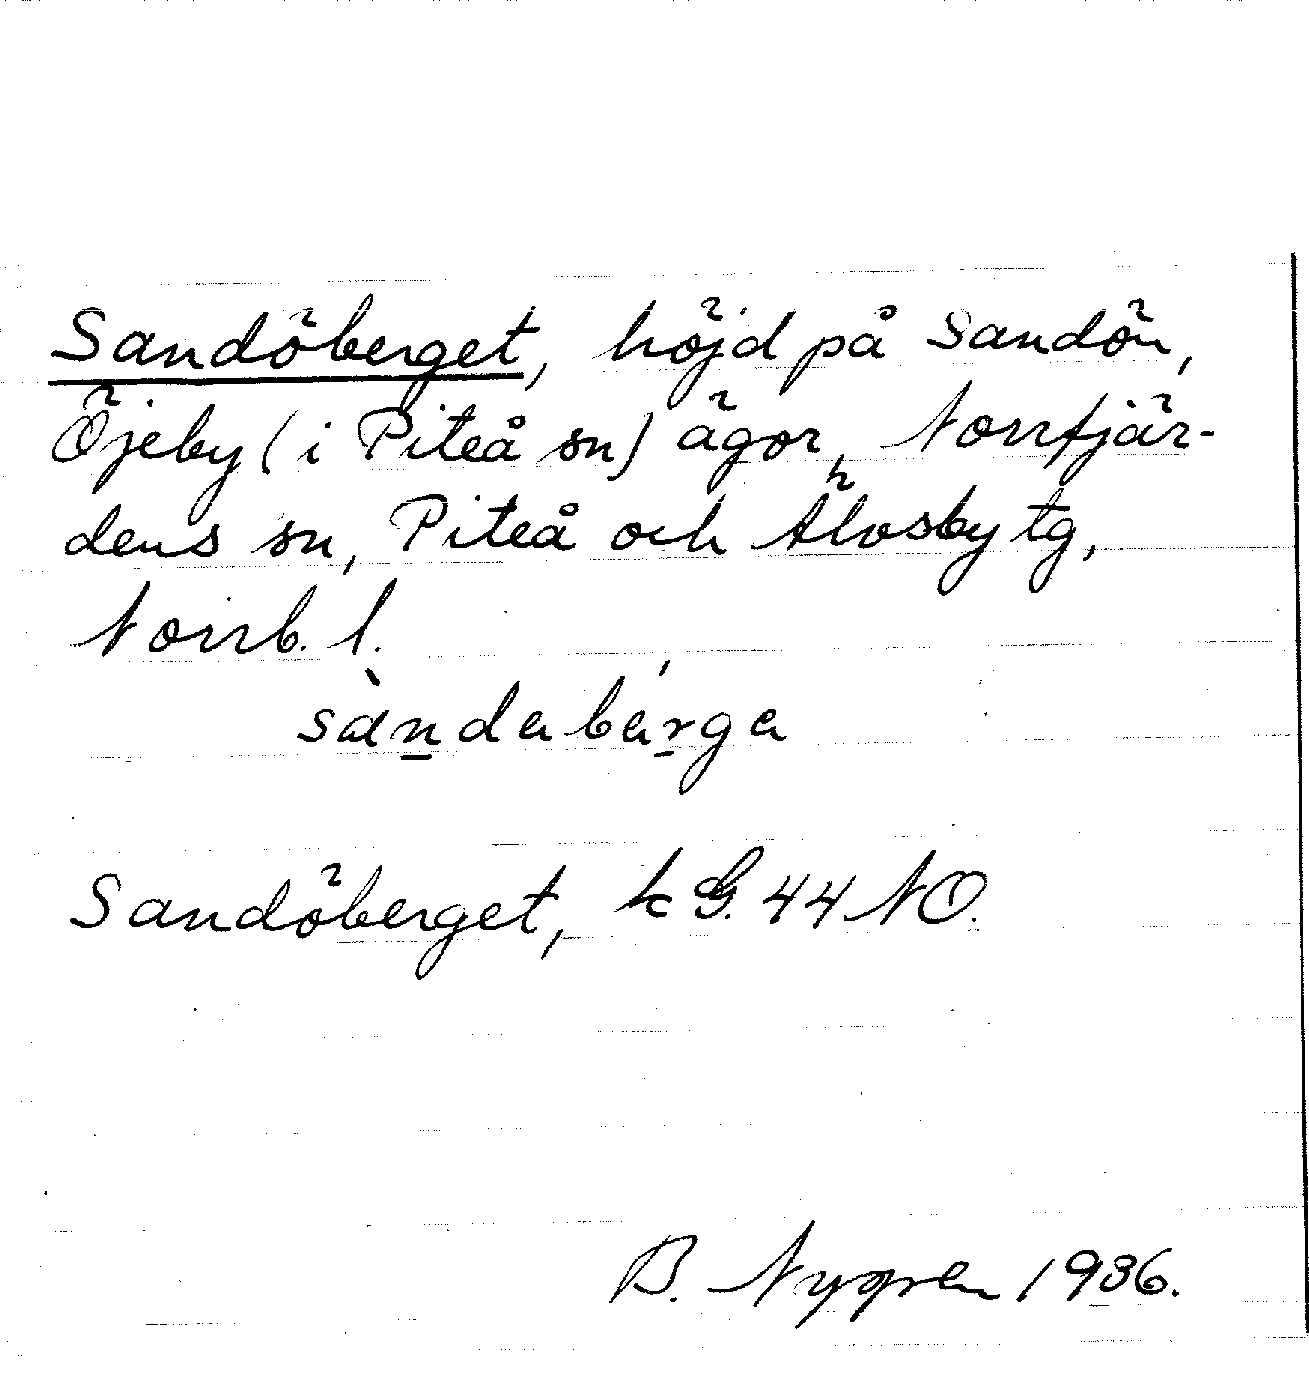 Sandöberget, höjd på Sandön,
Öjeby (i Piteå sn) ägor, Norrfjär-
dens sn, Piteå och Älvsby tg,
Norrb. l.
sàndabárga
Sandöberget, k G. 44 NO.
B. Nygren 1936.